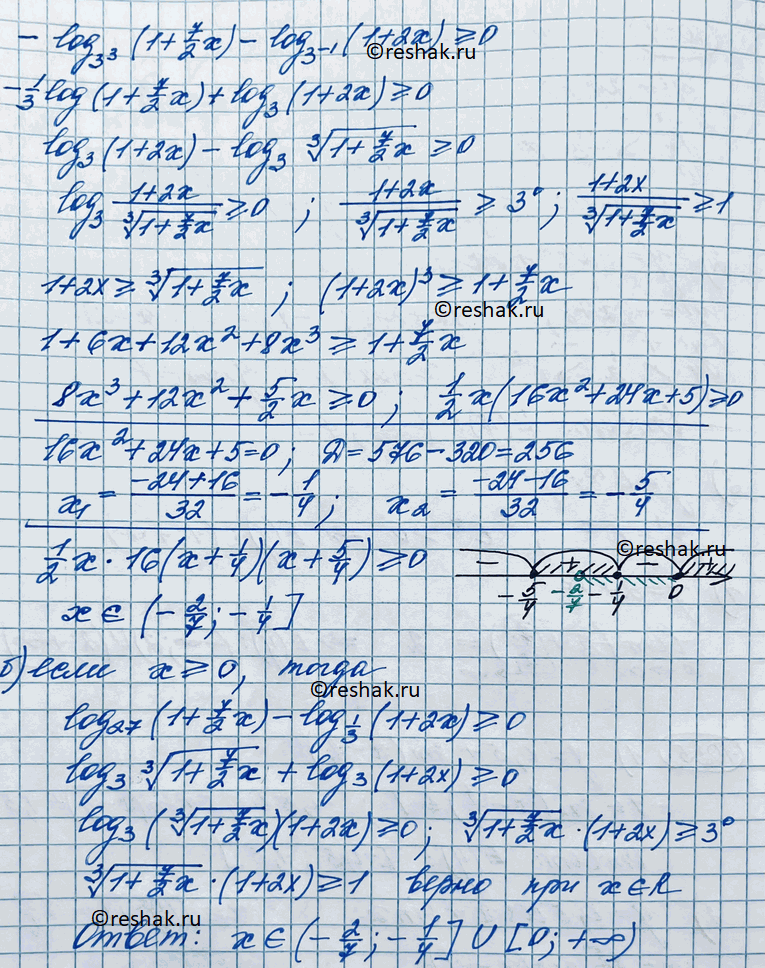 - log₃³ (1+7/2x) - log₃⁻¹ (1+2x) ≥ 0
©reshak.ru
-1/3 log (1+7/2x) + log₃ (1+2x) ≥ 0
log₃ (1+2x) - log₃ ∛(1+7/2x) ≥ 0
log₃ (1+2x)/∛(1+7/2x) ≥ 0 ; (1+2x)/∛(1+7/2x) ≥ 3⁰ ; (1+2x)/∛(1+7/2x) ≥ 1
1+2x ≥ ∛(1+7/2x) ; (1+2x)³ ≥ 1+7/2x
©reshak.ru
1+6x+12x²+8x³ ≥ 1+7/2x
8x³+12x²+5/2x ≥ 0 ; 1/2x(16x²+24x+5) ≥ 0
16x²+24x+5=0 ; Д=576-320=256
x₁ = (-24+16)/32 = -1/4 ; x₂ = (-24-16)/32 = -5/4
©reshak.ru
1/2x · 16(x+1/4)(x+5/4) ≥ 0
- + - +
-5/4 -2/7 -1/4 0
x ∈ (-2/7 ; -1/4]
б) если x ≥ 0, тогда
©reshak.ru
log₂₇ (1+7/2x) - log₁/₃ (1+2x) ≥ 0
log₃ ∛(1+7/2x) + log₃ (1+2x) ≥ 0
log₃ (∛(1+7/2x))(1+2x) ≥ 0 ; ∛(1+7/2x) · (1+2x) ≥ 3⁰
∛(1+7/2x) · (1+2x) ≥ 1 верно при x ∈ R
©reshak.ru
Ответ: x ∈ (-2/7 ; -1/4] U [0 ; +∞)